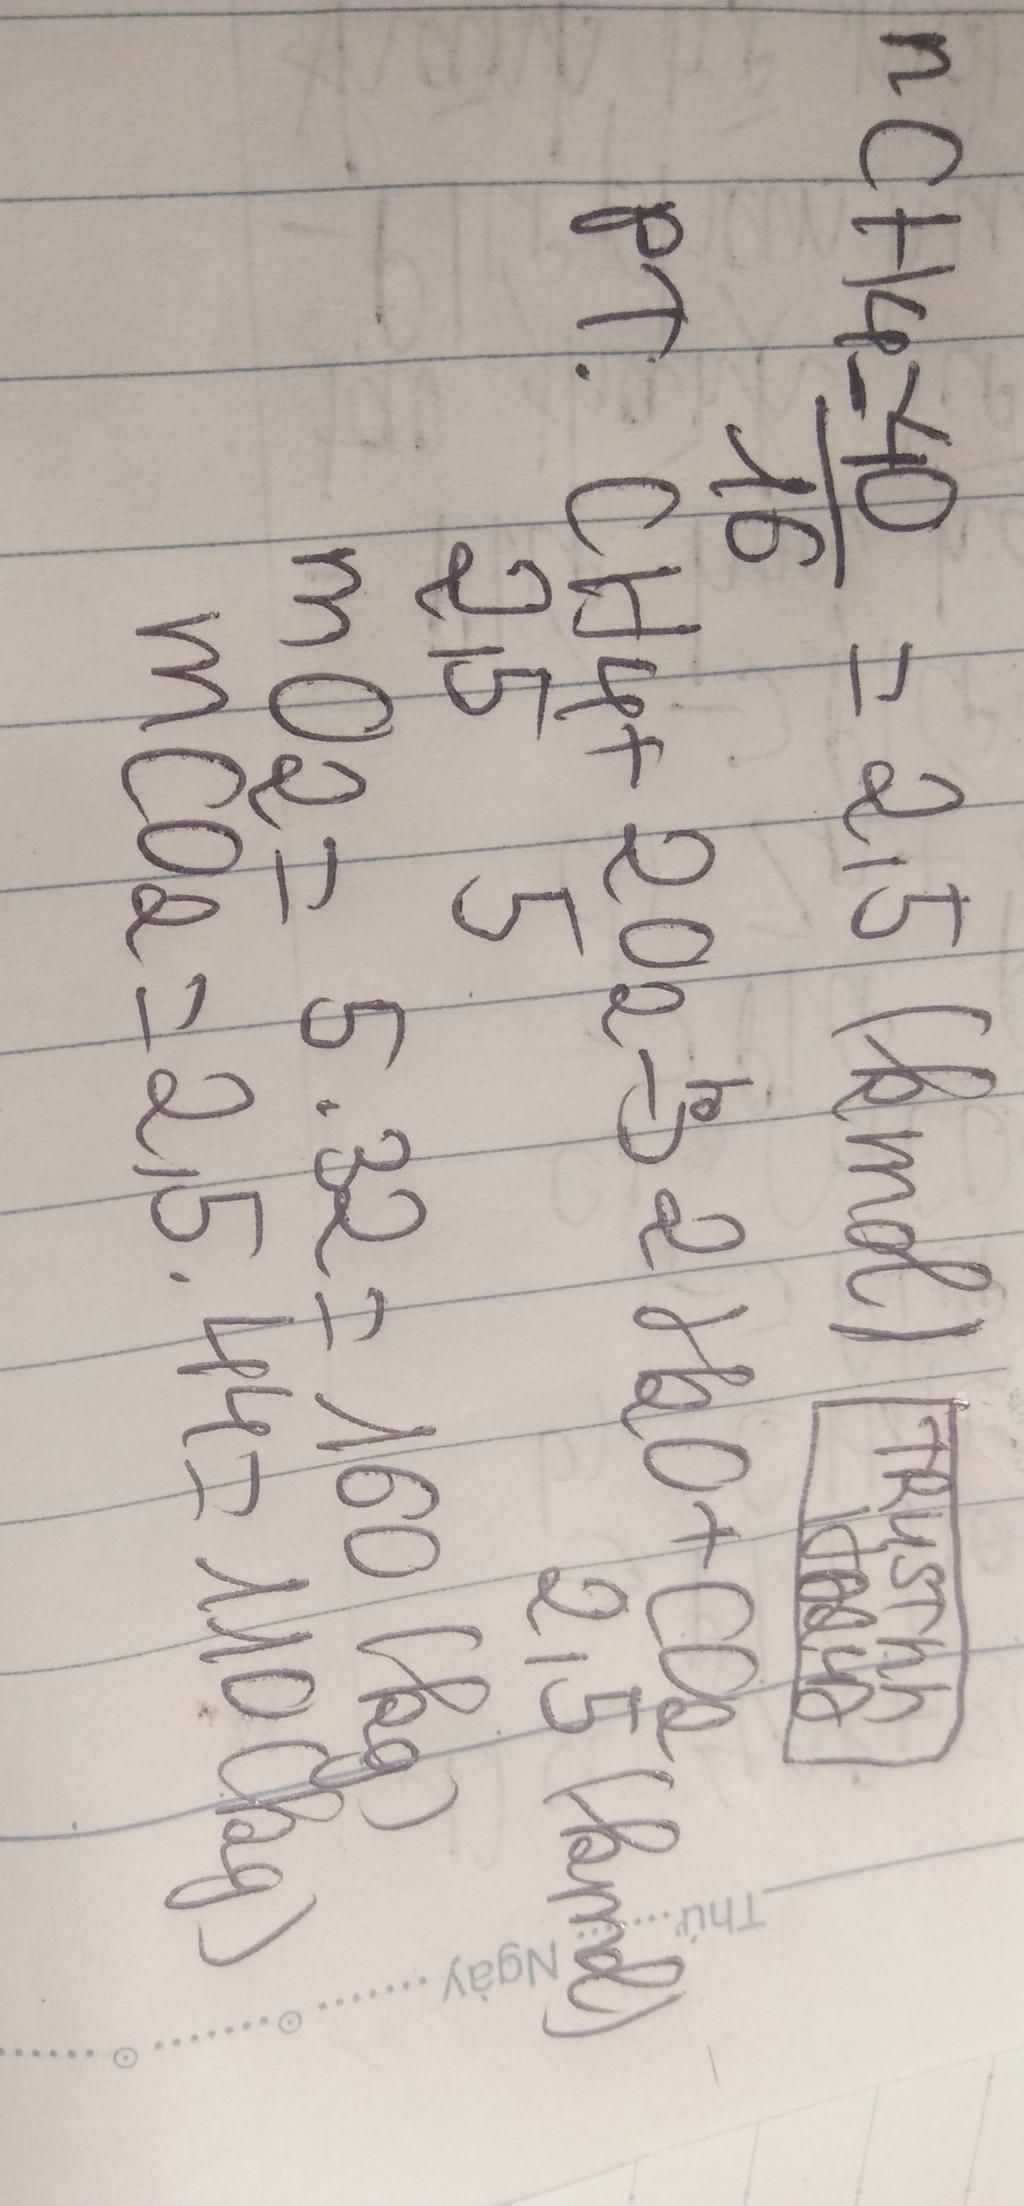 nCH4 = 40/16 = 2,5 (kmol)
PT: CH4 + 2O2 -to-> 2H2O + CO2
2,5 5 2,5 (kmol)
mO2 = 5.32 = 160 (kg)
mCO2 = 2,5.44 = 110 (kg)
Thứ ...... Ngày ......